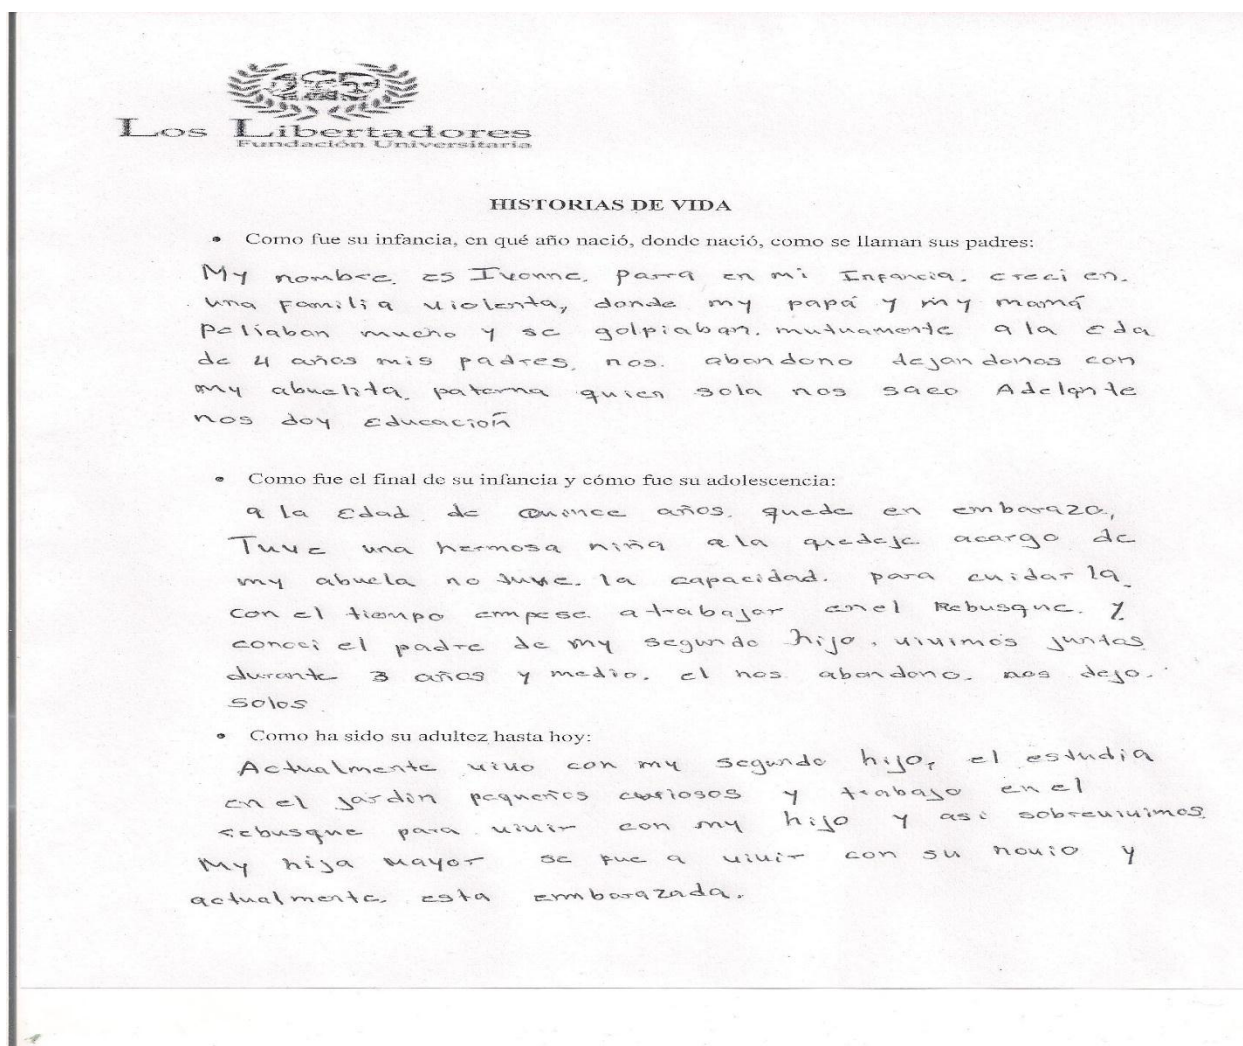 Los Libertadores
Fundación Universitaria
HISTORIAS DE VIDA
• Como fue su infancia, en qué año nació, donde nació, como se llaman sus padres:
My nombre. es Ivonne. parra en mi Infancia. creci en.
una Familia violenta, donde my papá y my mamá
peliaban mucho y se golpiaban. mutuamente a la eda
de 4 años mis padres. nos. abandono dejandonos con
my abuelita. paterna quien sola nos saco Adelante
nos doy educación
• Como fue el final de su infancia y cómo fue su adolescencia:
a la edad de quince años. quede en embarazo,
Tuve una hermosa niña a la quedeje acargo de
my abuela no tuve. la capacidad. para cuidar la
con el tiempo empese a trabajar enel Rebusque. y
conoci el padre de my segundo hijo. vivimos juntos
durante 3 años y medio. el nos abandono. nos dejo.
solos
• Como ha sido su adultez hasta hoy:
Actualmente vivo con my segundo hijo, el estudia
en el jardin pequeños curiosos y trabajo en el
rebusque para vivir con my hijo y asi sobrevivimos
My hija mayor se fue a vivir con su novio y
actualmente. esta embarazada.